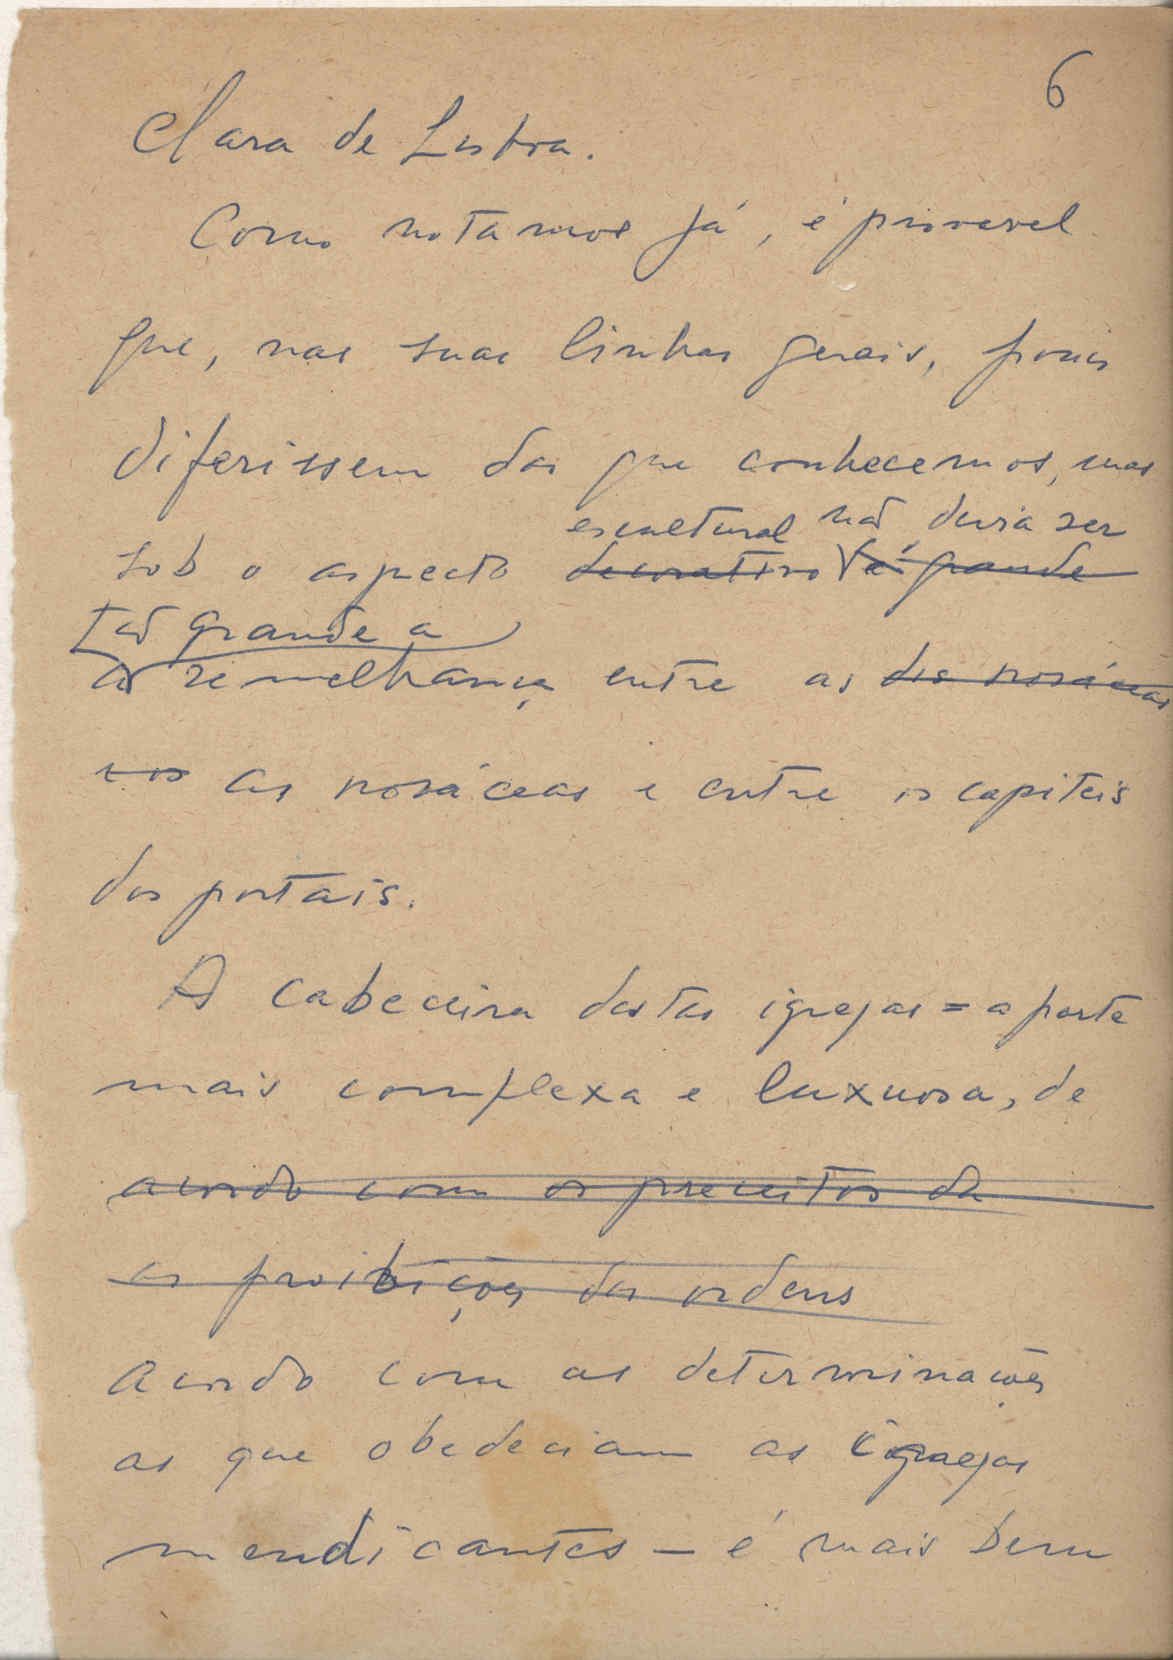 6
Clara de Lisboa.
Como notamos já, é provavel
que, nas suas linhas gerais, pouco
diferissem das que conhecemos, mas
escultural não devia ser
sob o aspecto decorativo é grande
tão grande a
a semelhança entre as das rosáceas
as rosáceas e entre os capiteis
dos portais.
A cabeceira destas igrejas = a parte
mais complexa e luxuosa, de
acordo com os preceitos da
as proibições das ordens
acordo com as determinações
as que obedeciam as igrejas
mendicantes — é mais bem